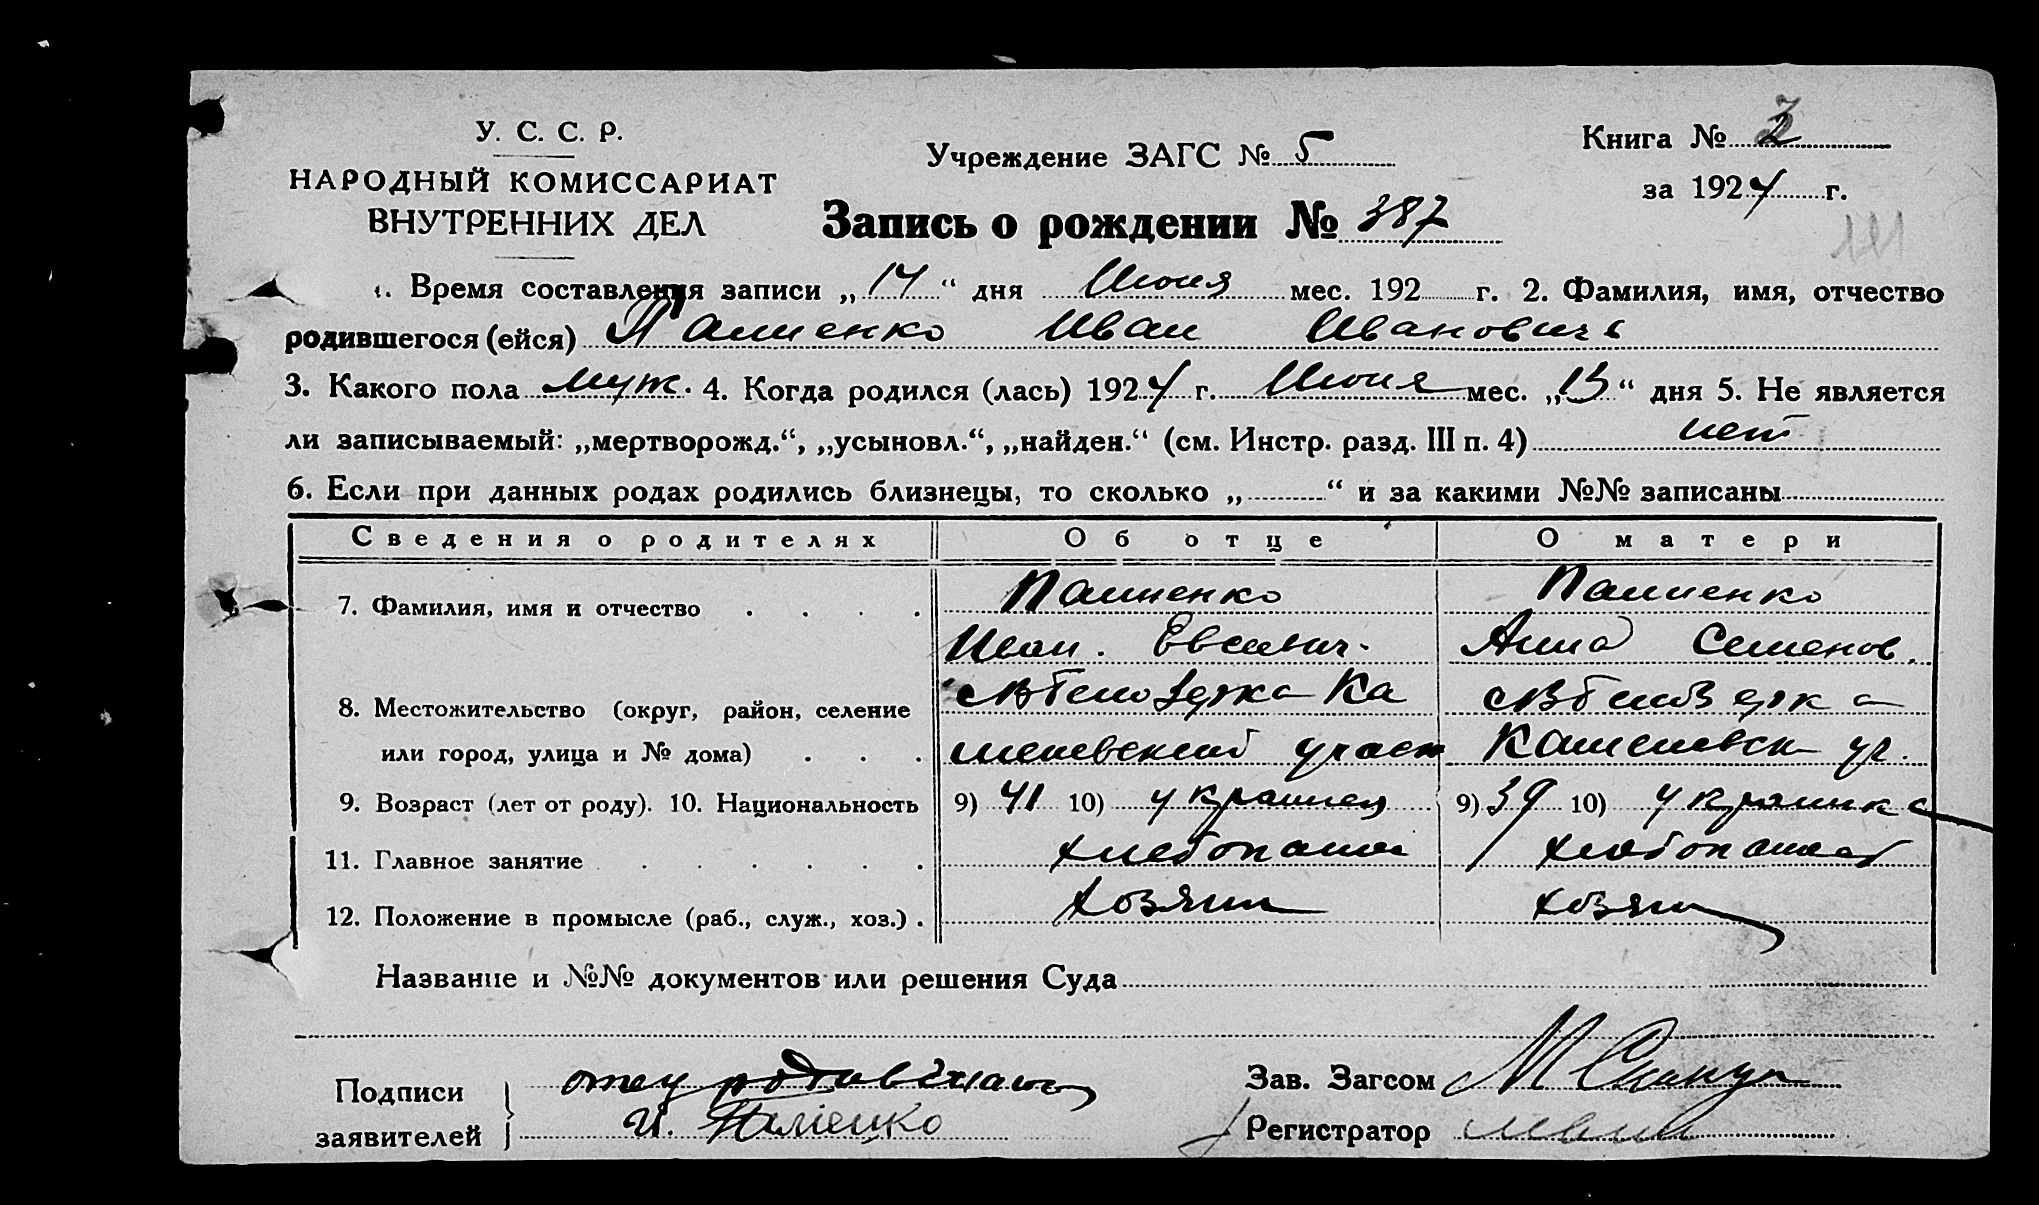 У. С. С. Р.
НАРОДНЫЙ КОМИССАРИАТ
ВНУТРЕННИХ ДЕЛ
Учреждение ЗАГС № 5
Книга №
за 1924 г.
Запись о рождении № 387
1. Время составления записи „14“ дня Июня мес. 192 г. 2. Фамилия, имя, отчество
родившегося (ейся) Иван Иванович
3. Какого пола муж. 4. Когда родился (лась) 1924 г. Июня мес. „13“ дня 5. Не является
ли записываемый: „мертворожд.“, „усыновл.“, „найден.“ (см. Инстр. разд. III п. 4) нет
6. Если при данных родах родились близнецы, то сколько „ “ и за какими №№ записаны
Сведения о родителях Об отце О матери
7. Фамилия, имя и отчество
Иван. Евсеевич. Анна Семенов.
8. Местожительство (округ, район, селение
или город, улица и № дома)
9. Возраст (лет от роду). 10. Национальность 9) 41 10) украинец 9) 39 10) украинка
11. Главное занятие хлебопашец
12. Положение в промысле (раб., служ., хоз.) хозяин
Название и №№ документов или решения Суда
Подписи отец
заявителей И.
Зав. Загсом
Регистратор